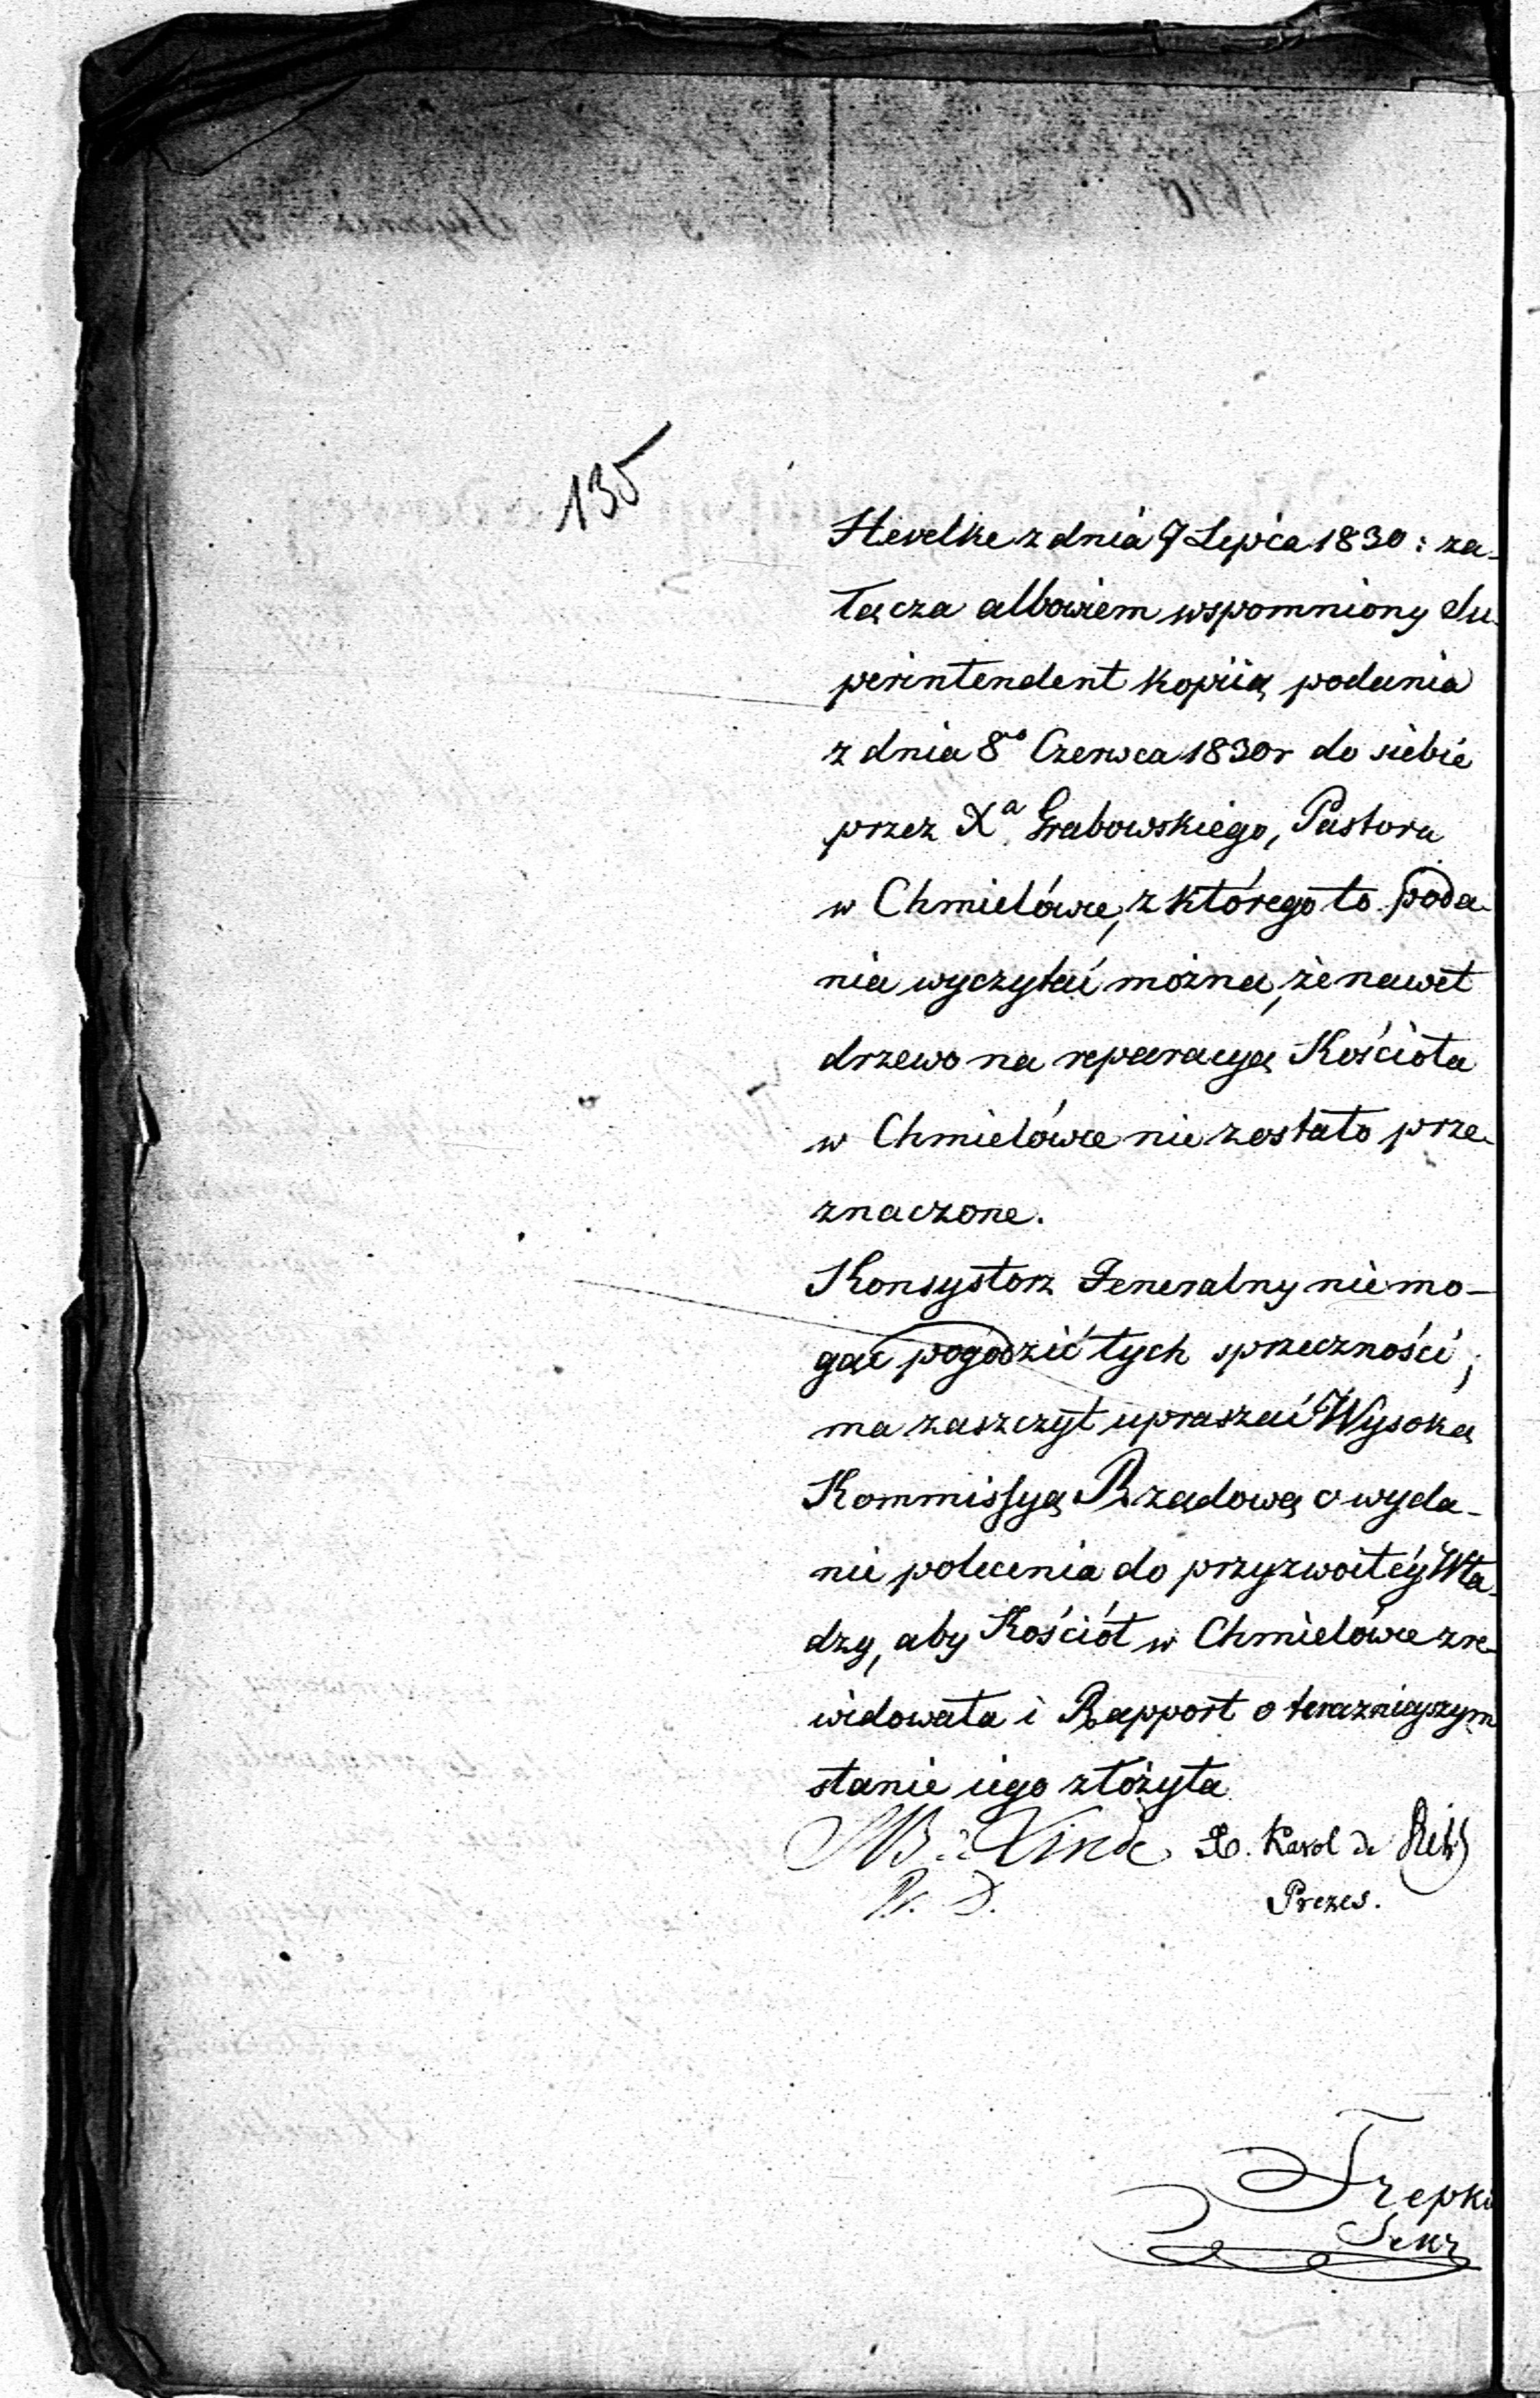 135
Hevelke z dnia 9 Lipca 1830: za-
łącza albowiem wspomniony Su-
perintendent kopiią podania
z dnia 8º Czerwca 1830r do siebie
przez Xª Grabowskiego, Pastora
w Chmielówie, z którego to poda-
nia wyczytać można, że nawet
drzewo na reparacyą Kościoła
w Chmielówie nie zostało prze-
znaczone.
Konsystorz Generalny nie mo-
gąc pogodzić tych sprzeczności,
ma zaszczyt upraszać Wysoką
Kommissyą Rządową o wyda-
nie polecenia do przyzwoitéy Wła-
dzy, aby Kościół w Chmielówie zre-
widowała i Rapport o teraznieyszym
stanie iego złożyła
X. Karol de
Prezes.
Trepka
Sekr